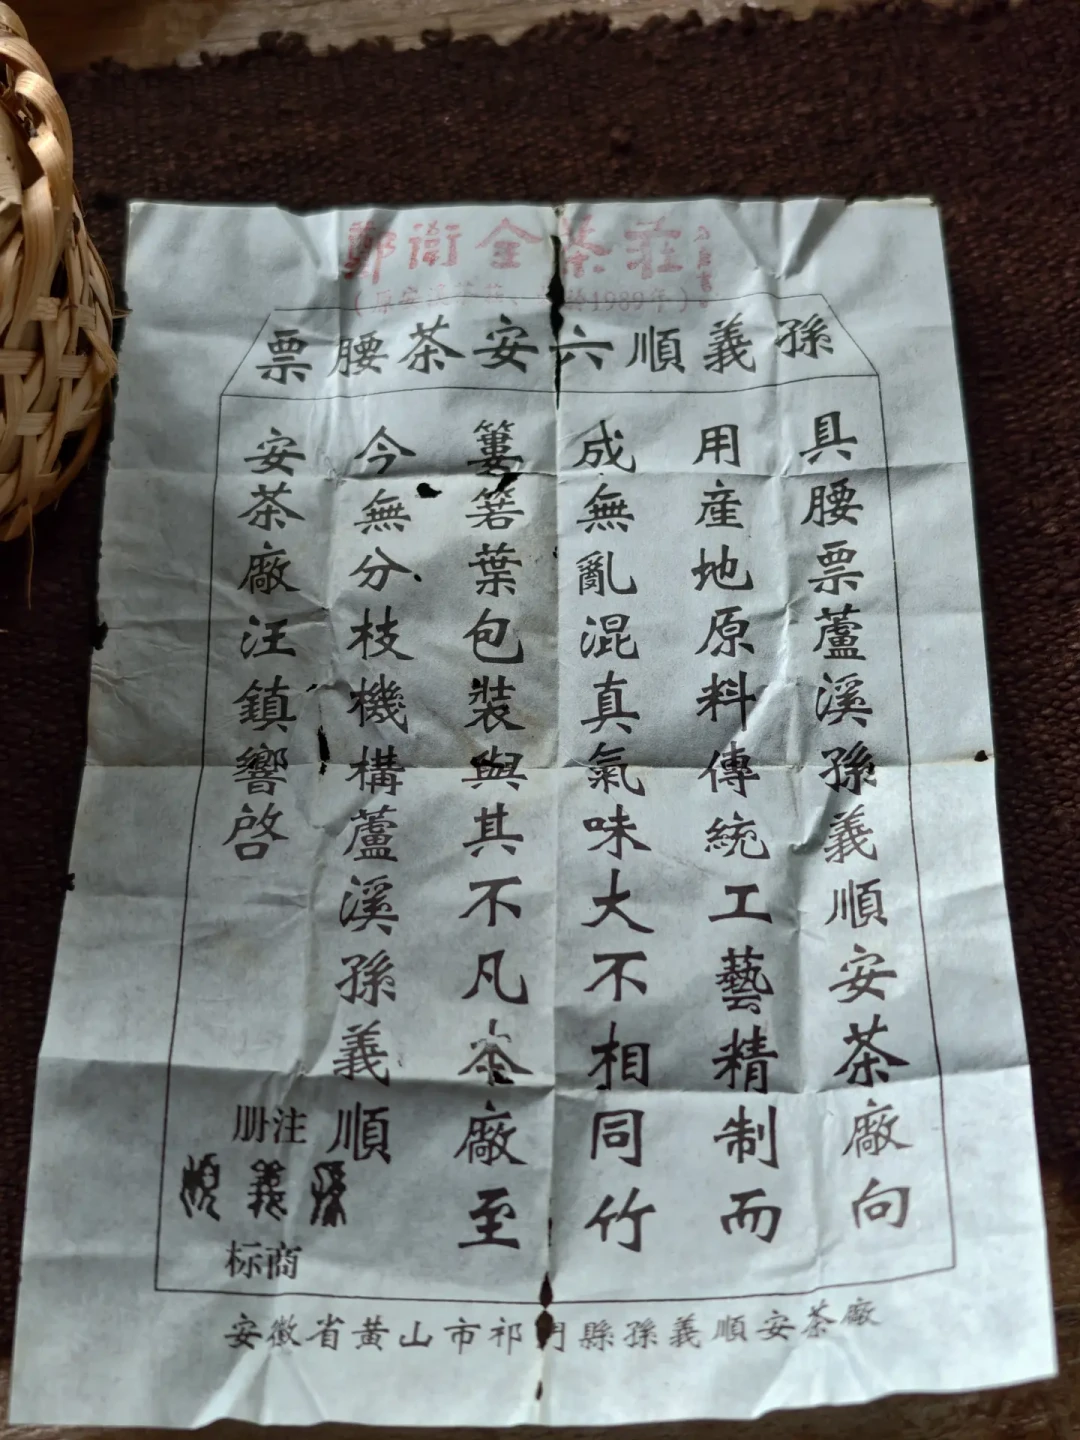 鄭衛全茶莊
孫義順六安茶腰票
具腰票蘆溪孫義順安茶廠向
用産地原料傳統工藝精制而
成無亂混真氣味大不相同竹
簍箬葉包裝與其不凡本廠至
今無分枝機構蘆溪孫義順
安茶廠汪鎮響啓
注册
孫義順
商标
安徽省黄山市祁門縣孫義順安茶廠